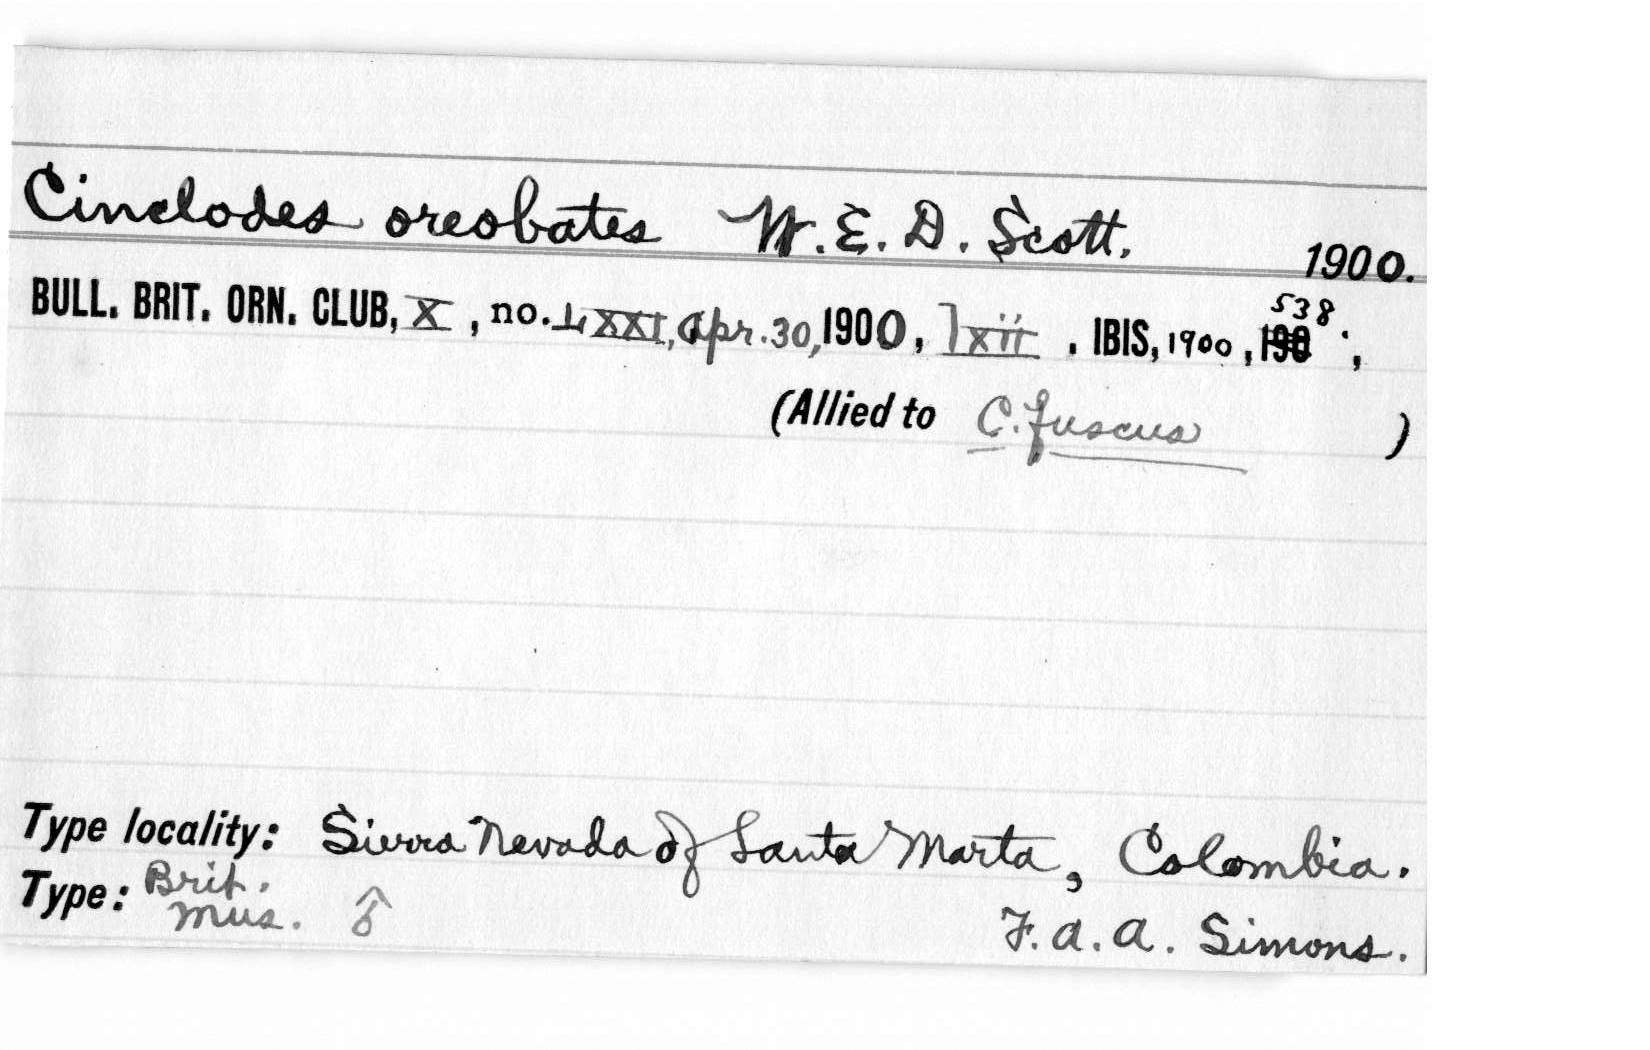 Cinclodes oreobates W. E. D. Scott. 1900.
538
BULL. BRIT. ORN. CLUB, X, no. LXXI, Apr. 30, 1900, lxii. IBIS, 1900, 190.,
(Allied to C. fuscus )
Type locality: Sierra Nevada of Santa Marta, Colombia.
Type: Brit. Mus. ♂ F. A. A. Simons.